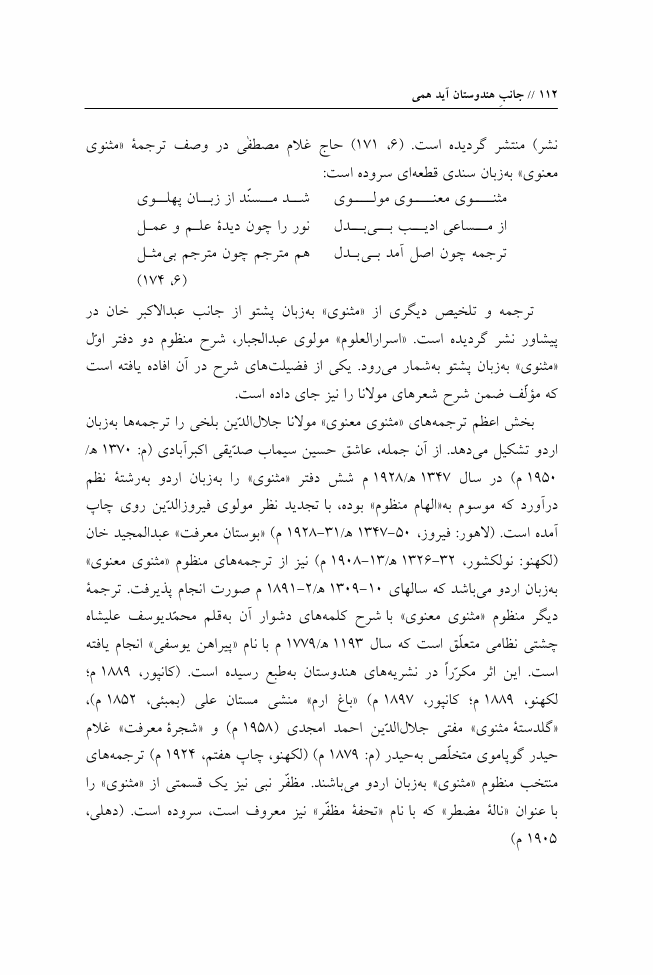 ۱۱۲ // جانبِ هندوستان آید همی
نشر) منتشر گردیده است. (۶، ۱۷۱) حاج غلام مصطفٰی در وصف ترجمهٔ «مثنوی
معنوی» به‌زبان سندی قطعه‌ای سروده است:
مثنـــوی معنـــوی مولـــوی شـــد مـــسنّد از زبـــان پهلـــوی
از مـــساعی ادیـــب بـــی‌بـــدل نور را چون دیدهٔ علـم و عمـل
ترجمه چون اصل آمد بـی‌بـدل هم مترجم چون مترجم بی‌مثـل
(۶، ۱۷۴)
ترجمه و تلخیص دیگری از «مثنوی» به‌زبان پشتو از جانب عبدالاکبر خان در
پیشاور نشر گردیده است. «اسرارالعلوم» مولوی عبدالجبار، شرح منظوم دو دفتر اوّل
«مثنوی» به‌زبان پشتو به‌شمار می‌رود. یکی از فضیلت‌های شرح در آن افاده یافته است
که مؤلّف ضمن شرح شعرهای مولانا را نیز جای داده است.
بخش اعظم ترجمه‌های «مثنوی معنوی» مولانا جلال‌الدّین بلخی را ترجمه‌ها به‌زبان
اردو تشکیل می‌دهد. از آن جمله، عاشق حسین سیماب صدّیقی اکبرآبادی (م: ۱۳۷۰ ه‍/
۱۹۵۰ م) در سال ۱۳۴۷ ه‍/۱۹۲۸ م شش دفتر «مثنوی» را به‌زبان اردو به‌رشتهٔ نظم
درآورد که موسوم به«الهام منظوم» بوده، با تجدید نظر مولوی فیروزالدّین روی چاپ
آمده است. (لاهور: فیروز، ۵۰-۱۳۴۷ ه‍/۳۱-۱۹۲۸ م) «بوستان معرفت» عبدالمجید خان
(لکهنو: نولکشور، ۳۲-۱۳۲۶ ه‍/۱۳-۱۹۰۸ م) نیز از ترجمه‌های منظوم «مثنوی معنوی»
به‌زبان اردو می‌باشد که سالهای ۱۰-۱۳۰۹ ه‍/۲-۱۸۹۱ م صورت انجام پذیرفت. ترجمهٔ
دیگر منظوم «مثنوی معنوی» با شرح کلمه‌های دشوار آن به‌قلم محمّدیوسف علیشاه
چشتی نظامی متعلّق است که سال ۱۱۹۳ ه‍/۱۷۷۹ م با نام «پیراهن یوسفی» انجام یافته
است. این اثر مکرّراً در نشریه‌های هندوستان به‌طبع رسیده است. (کانپور، ۱۸۸۹ م؛
لکهنو، ۱۸۸۹ م؛ کانپور، ۱۸۹۷ م) «باغ ارم» منشی مستان علی (بمبئی، ۱۸۵۲ م)،
«گلدستهٔ مثنوی» مفتی جلال‌الدّین احمد امجدی (۱۹۵۸ م) و «شجرهٔ معرفت» غلام
حیدر گوپاموی متخلّص به‌حیدر (م: ۱۸۷۹ م) (لکهنو، چاپ هفتم، ۱۹۲۴ م) ترجمه‌های
منتخب منظوم «مثنوی» به‌زبان اردو می‌باشند. مظفّر نبی نیز یک قسمتی از «مثنوی» را
با عنوان «نالهٔ مضطر» که با نام «تحفهٔ مظفّر» نیز معروف است، سروده است. (دهلی،
۱۹۰۵ م)